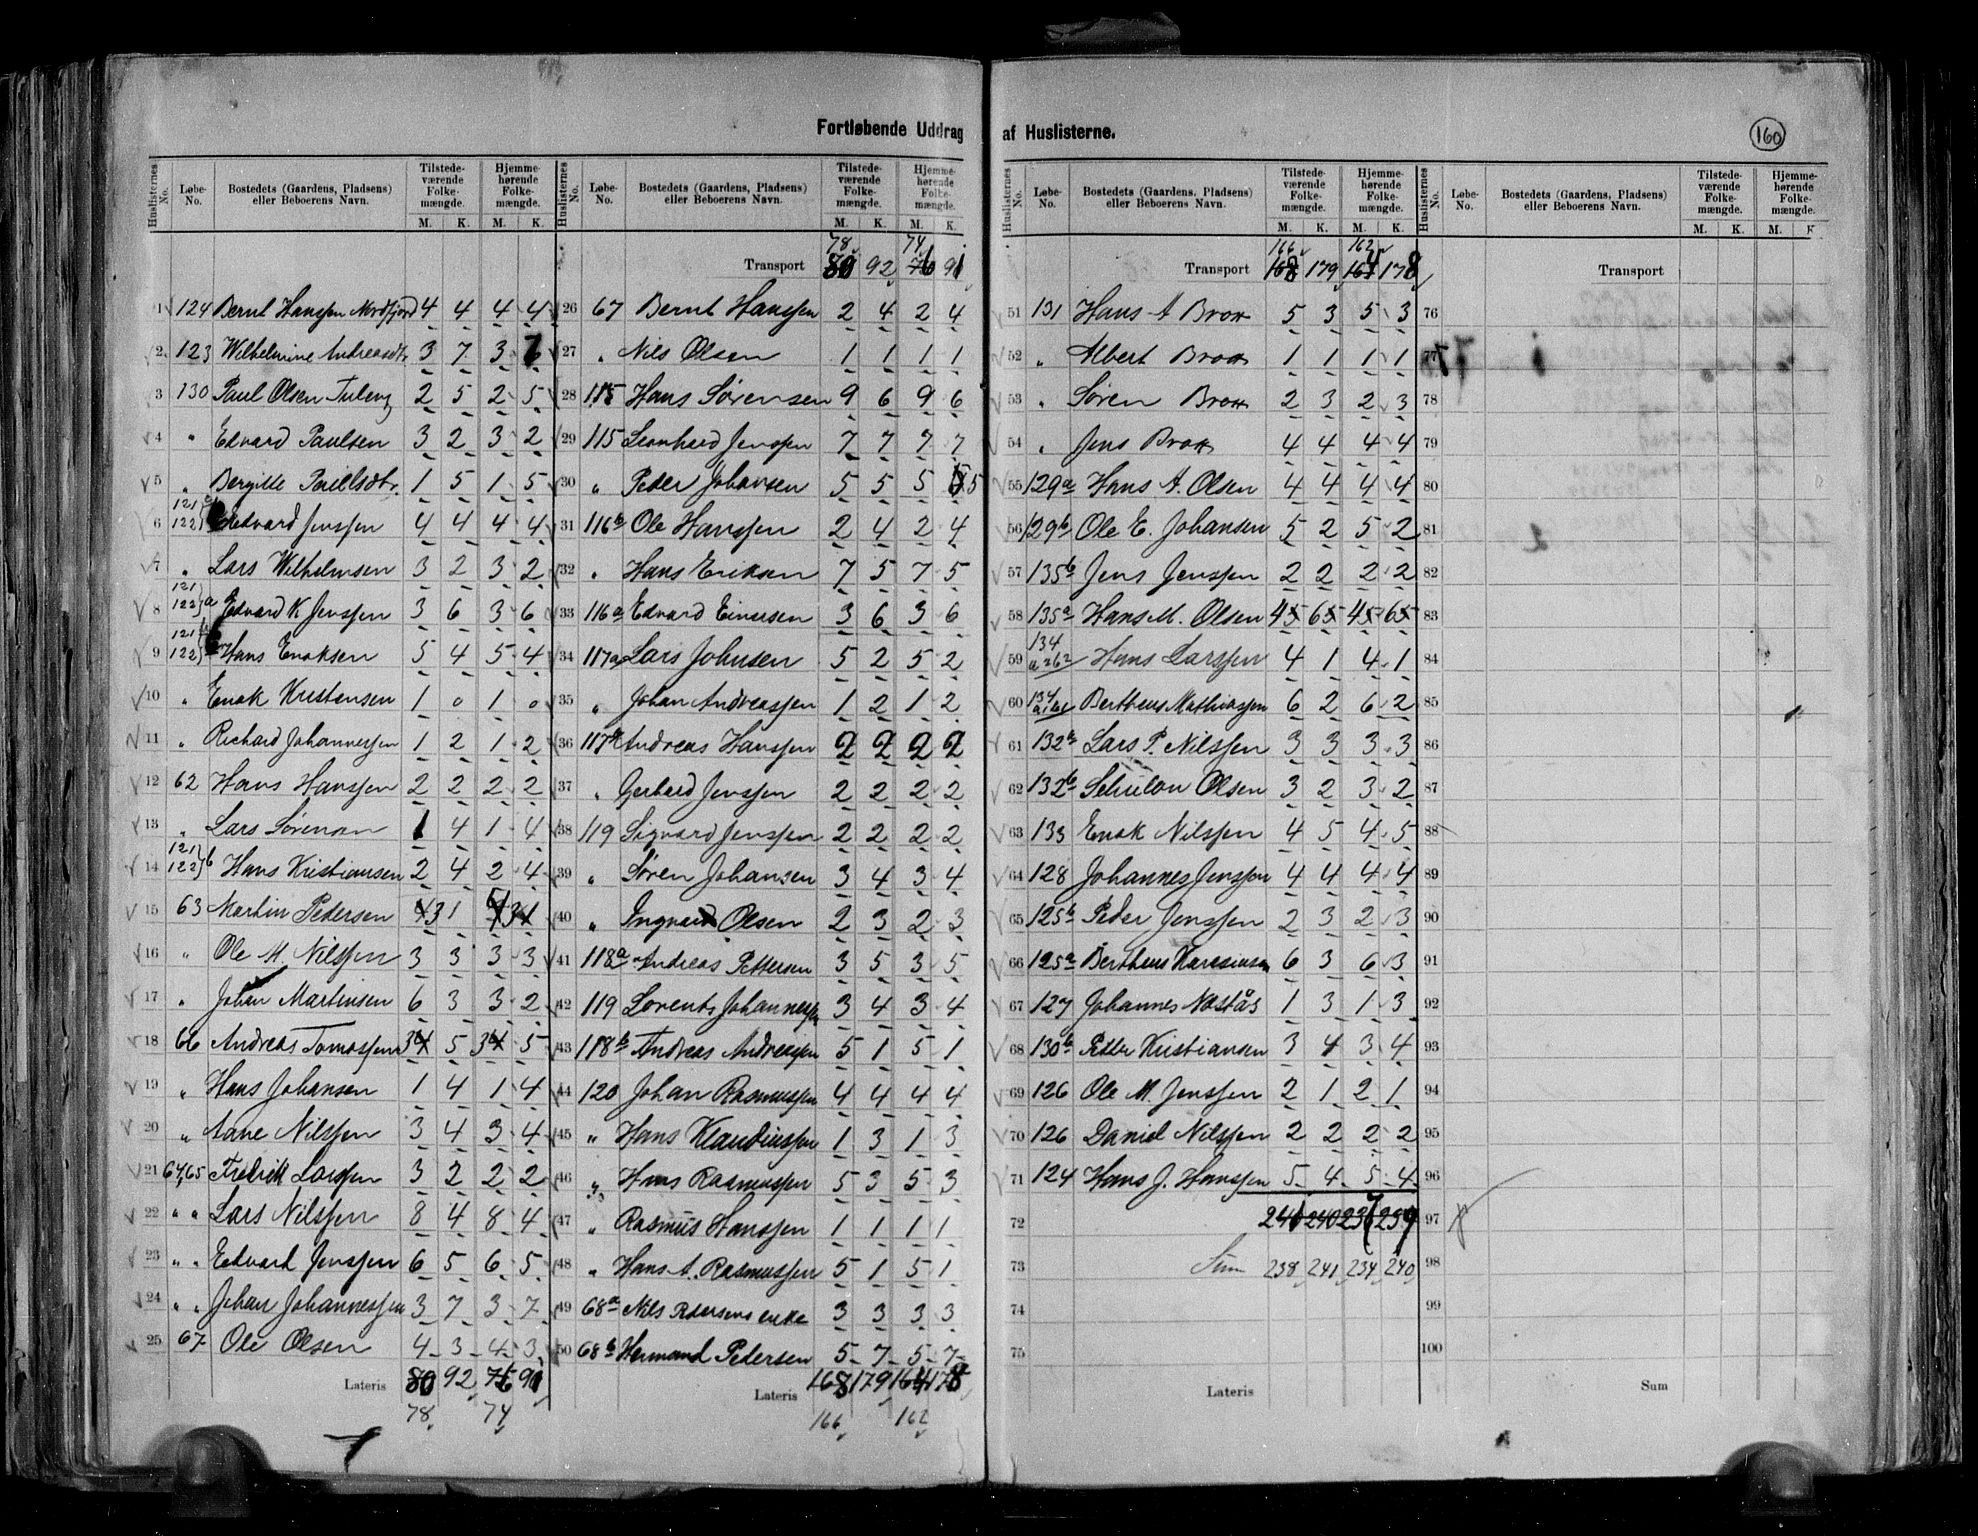 Fortløbende Uddrag af Huslisterne.
160
Huslisternes No. Løbe-No. Bostedets (Gaardens, Pladsens) eller Beboerens Navn. Tilstedeværende Folkemængde. M. K. Hjemmehørende Folkemængde. M. K.
1 124 Bernt Hanssen Nordfjord 4 4 4 4
2 123 Wilhelmine Andreasdtr 3 7 3 7
3 130 Paul Olsen 2 5 2 5
4 " Edvard Paulsen 3 2 3 2
5 " Bergitte 1 5 1 5
6 121 122 Edvard Jenssen 4 4 4 4
7 " Lars Wilhelmsen 3 2 3 2
8 121 122 a Edvard K Jenssen 3 6 3 6
9 121 122 Hans Enoksen 5 4 5 4
10 " Enok Kristensen 1 0 1 0
11 " Richard Johannessen 1 2 1 2
12 62 Hans Hanssen 2 2 2 2
13 " Lars Sørensen 1 4 1 4
14 121 122 b Hans Kristiansen 2 4 2 4
15 63 Martin Pedersen 3 1 3 1
16 " Ole M. Nilssen 3 3 3 3
17 " Johan Martinsen 6 3 3 2
18 66 Andreas Tomassen 3 5 3 5
19 " Hans Johansen 1 4 1 4
20 " Aane Nilssen 3 4 3 4
21 64,65 Fredrik Larssen 3 2 2 2
22 " " Lars Nilssen 8 4 8 4
23 " " Edvard Jenssen 6 5 6 5
24 " " Johan Johannessen 3 7 3 7
25 67 Ole Olsen 4 3 4 3
Lateris 80 92 76 91
78 74
Huslisternes No. Løbe-No. Bostedets (Gaardens, Pladsens) eller Beboerens Navn. Tilstedeværende Folkemængde. M. K. Hjemmehørende Folkemængde. M. K.
78 74
Transport 80 92 76 91
26 67 Bernt Hanssen 2 4 2 4
27 " Nils Olsen 1 1 1 1
28 115 Hans Sørensen 9 6 9 6
29 115 Leonhard Jenssen 7 7 7 7
30 " Peder Johansen 5 5 5 5
31 116b Ole Hanssen 2 4 2 4
32 " Hans Eriksen 7 5 7 5
33 116a Edvard Einersen 3 6 3 6
34 117a Lars Johnsen 5 2 5 2
35 " Johan Andreassen 1 2 1 2
36 117b Andreas Hanssen 2 2 2 2
37 " Gerhard Jenssen 2 2 2 2
38 119 Sigvard Jenssen 2 2 2 2
39 " Søren Johansen 3 4 3 4
40 " Ingvard Olsen 2 3 2 3
41 118a Andreas Pettersen 3 5 3 5
42 119 Lorents Johannessen 3 4 3 4
43 118b Andreas Andreassen 5 1 5 1
44 120 Johan Rasmussen 4 4 4 4
45 " Hans Klaudiussen 1 3 1 3
46 " Hans Rasmussen 5 3 5 3
47 " Rasmus Hanssen 1 1 1 1
48 " Hans A. Rasmussen 5 1 5 1
49 68a Nils Pedersens enke 3 3 3 3
50 68b Hermand Pedersen 5 7 5 7
Lateris 168 179 164 178
166 162
Huslisternes No. Løbe-No. Bostedets (Gaardens, Pladsens) eller Beboerens Navn. Tilstedeværende Folkemængde. M. K. Hjemmehørende Folkemængde. M. K.
166 162
Transport 168 179 164 178
51 131 Hans A Brox 5 3 5 3
52 " Albert Brox 1 1 1 1
53 " Søren Brox 2 3 2 3
54 " Jens Brox 4 4 4 4
55 129a Hans A. Olsen 4 4 4 4
56 129b Ole E. Johansen 5 2 5 2
57 135b Jens Jenssen 2 2 2 2
58 135a Hans M. Olsen 4 6 4 6
59 134 Hans Larssen 4 1 4 1
60 134 Bertheus Mathiassen 6 2 6 2
61 132a Lars P. Nilssen 3 3 3 3
62 132b Olsen 3 2 3 2
63 133 Enok Nilssen 4 5 4 5
64 128 Johannes Jenssen 4 4 4 4
65 125b Peder Jenssen 2 3 2 3
66 125a Bertheus 6 3 6 3
67 127 Johannes Næstås 1 3 1 3
68 130b Petter Kristiansen 3 4 3 4
69 126 Ole M. Jenssen 2 1 2 1
70 126 Daniel Nilssen 2 2 2 2
71 124 Hans J. Hanssen 5 4 5 4
72 240 240 237 239
73 Sum 238 241 234 240
74
75
Lateris
Huslisternes No. Løbe-No. Bostedets (Gaardens, Pladsens) eller Beboerens Navn. Tilstedeværende Folkemængde. M. K. Hjemmehørende Folkemængde. M. K.
Transport
76
77
78
79
80
81
82
83
84
85
86
87
88
89
90
91
92
93
94
95
96
97
98
99
100
Sum